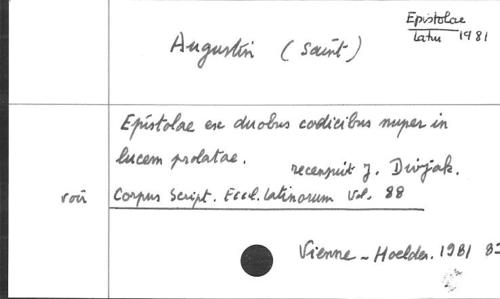 Epistolae
latin 1981
Augustin (Saint)
Epistolae ex duobus codicibus nuper in
lucem prolatae. recensuit J. Divjak.
voir Corpus Script. Eccl. Latinorum Vol. 88
Vienne - Hoelder. 1981